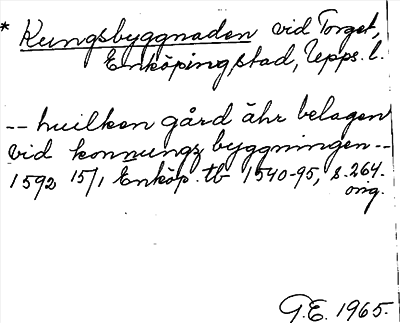 * Kungsbyggnaden vid Torget,
Enköping stad, Upps. l.
-- huilken gård ähr belagen
vid konnungz byggningen --
1592 15/1 Enköp. tb 1540-95, s. 264.
orig.
G.E. 1965.